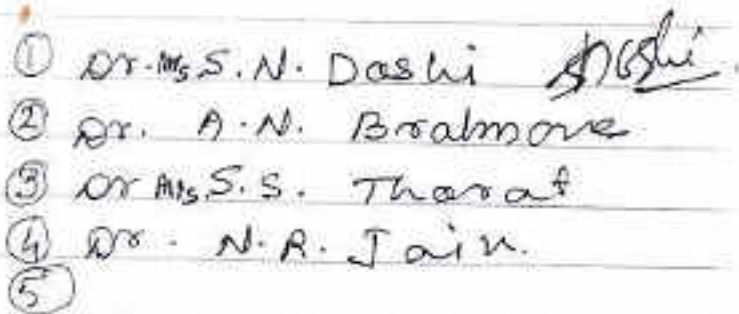 ① Dr. Mrs S. N. Dashi
② Dr. A. N. Bralmove
③ Dr Mrs. S. S. Tharat
④ Dr. N. R. Jain.
⑤